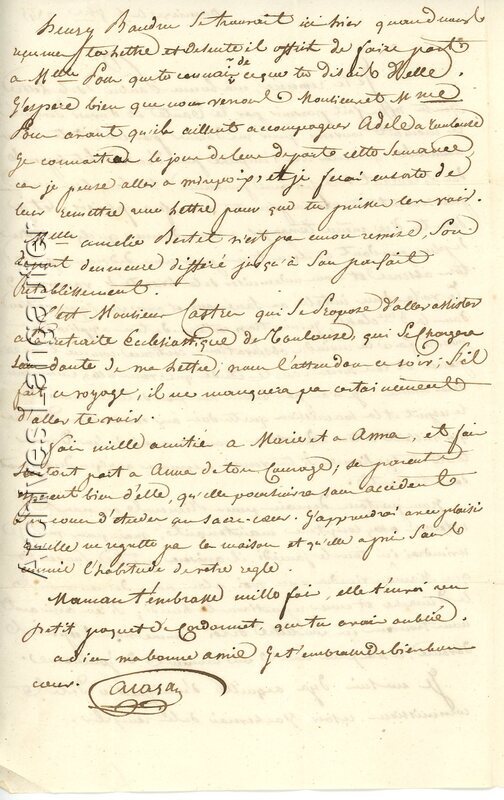 henry Baudru se trouvait ici hier quand nous
reçumes ta lettre et desuite il offrit de faire part
a Melle Pour qui te connais de ce que tu disait d'elle.
J'espere bien que nous verrons Monsieur et Mme
Pour avant qu'ils aillent accompagner Adele a Toulouse
Je connaitrai le jour de leur depart cette semaine,
car je pense aller a mirepoix, et je ferai ensorte de
leur remettre une lettre pour que tu puisse les voir.
Melle amelie Bertet n'est pas encore remise, son
depart demeure differé jusqu'à son parfait
retablissement.
C'est Monsieur Castres qui se propose d'aller assister
a la retraite Ecclesiastique de Toulouse, qui se chargera
sans doute de ma lettre; nous l'attendons ce soir; s'il
fait ce voyage, il ne manquera pas certainement
d'aller te voir.
fais mille amitiés a Marie et a Anna, et fais
surtout part a Anna de ton courage, ses parents
esperent bien d'elle, qu'elle poursuivra sans accident
son cours d'etudes au sacré-cœur. J'apprendrai avec plaisir
qu'elle ne regrette pas la maison et qu'elle a pris sans
ennui l'habitude de votre regle.
Maman t'embrasse mille fois, elle t'envoi un
petit paquet de Cordonnet, que tu avais oublié.
adieu ma bonne amie Je t'embrasse de bien bon
cœur.
Archives Lansarrier